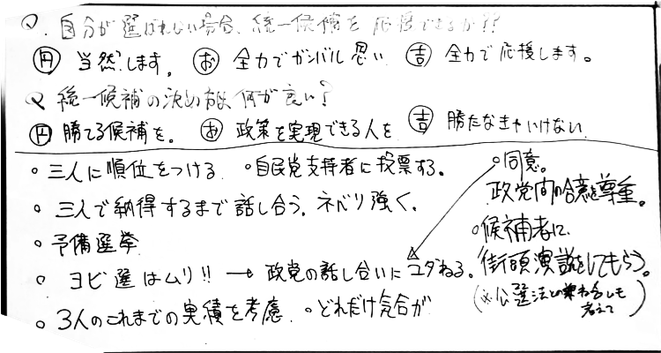 Q. 自分が選ばれない場合、統一候補を応援できるか??
円 当然します。 お 全力でガンバル思い 吉 全力で応援します。
Q 統一候補の決め方は何が良い?
円 勝てる候補を。 お 政策を実現できる人を 吉 勝たなきゃいけない
。三人に順位をつける 。自民党支持者に投票する。
。三人で納得するまで話し合う。ネバリ強く。
。予備選挙
。ヨビ選はムリ!! → 政党の話し合いにユダねる。
。3人のこれまでの実績を考慮 。どれだけ気合が
。同意。
政党間の合意を尊重。
。候補者に
街頭演説をしてもらう。
(※公選法との兼ね合いも
考えて)